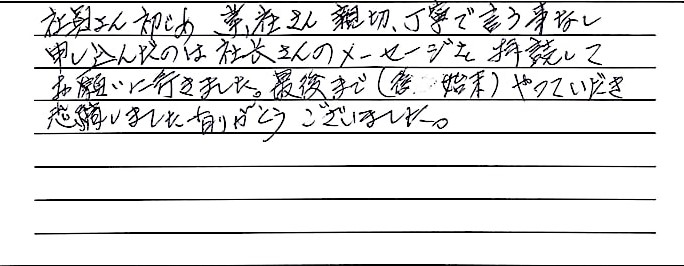 社員さん初じめ 業社さん 親切、丁寧で言う事なし
申し込んだのは社長さんのメーセージを 拝読して
お願いに行きました。最後まで(後 始末)やっていだき
感謝しました ありがとう ございました。